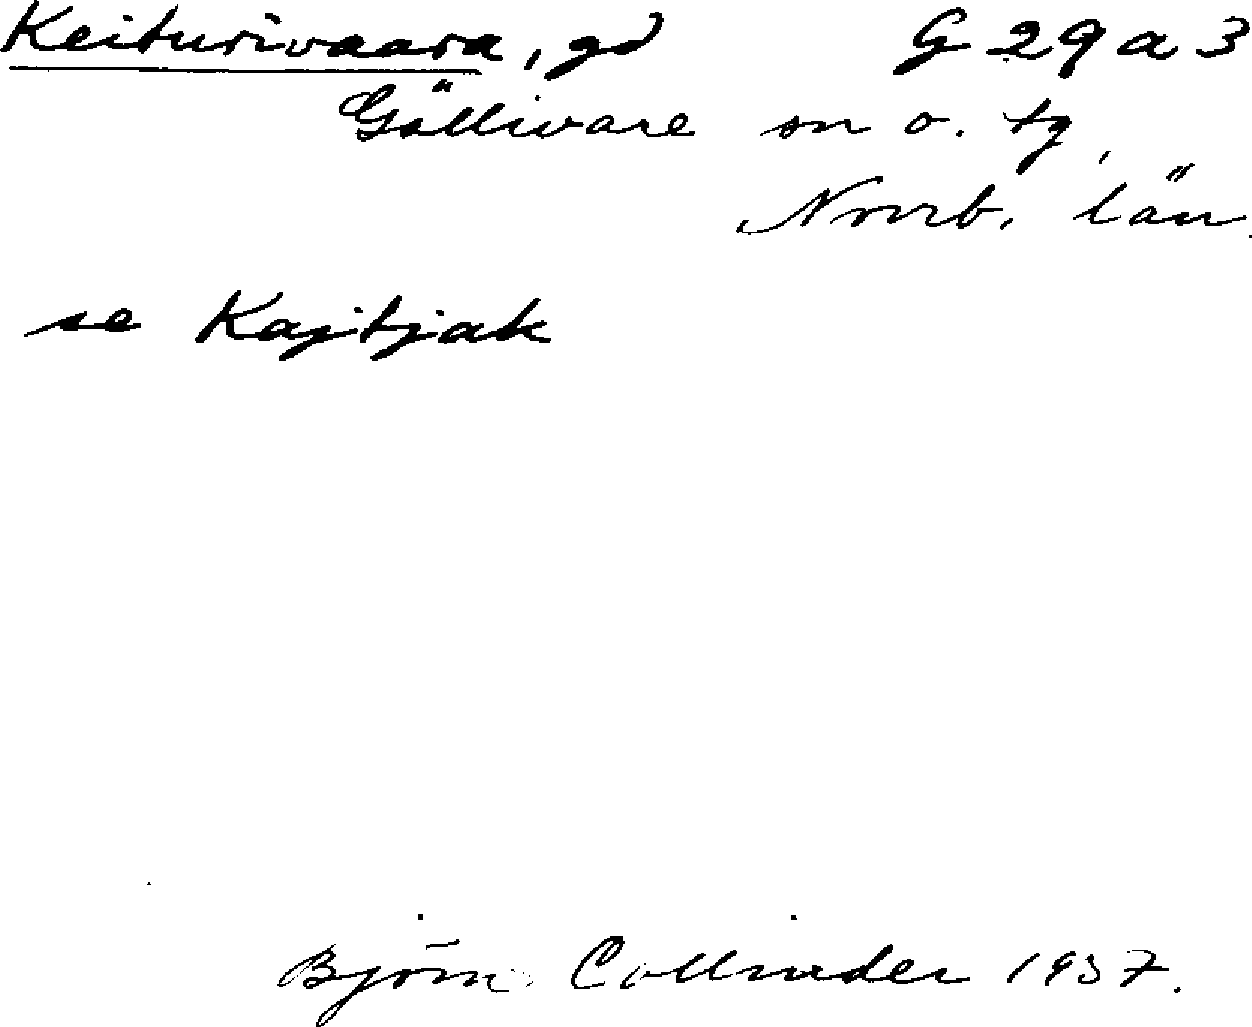 Keiturivaara, gd G 29 a 3
Gällivare sn o. tg,
Norrb. län.
se Kajtjak
Björn Collinder 1937.